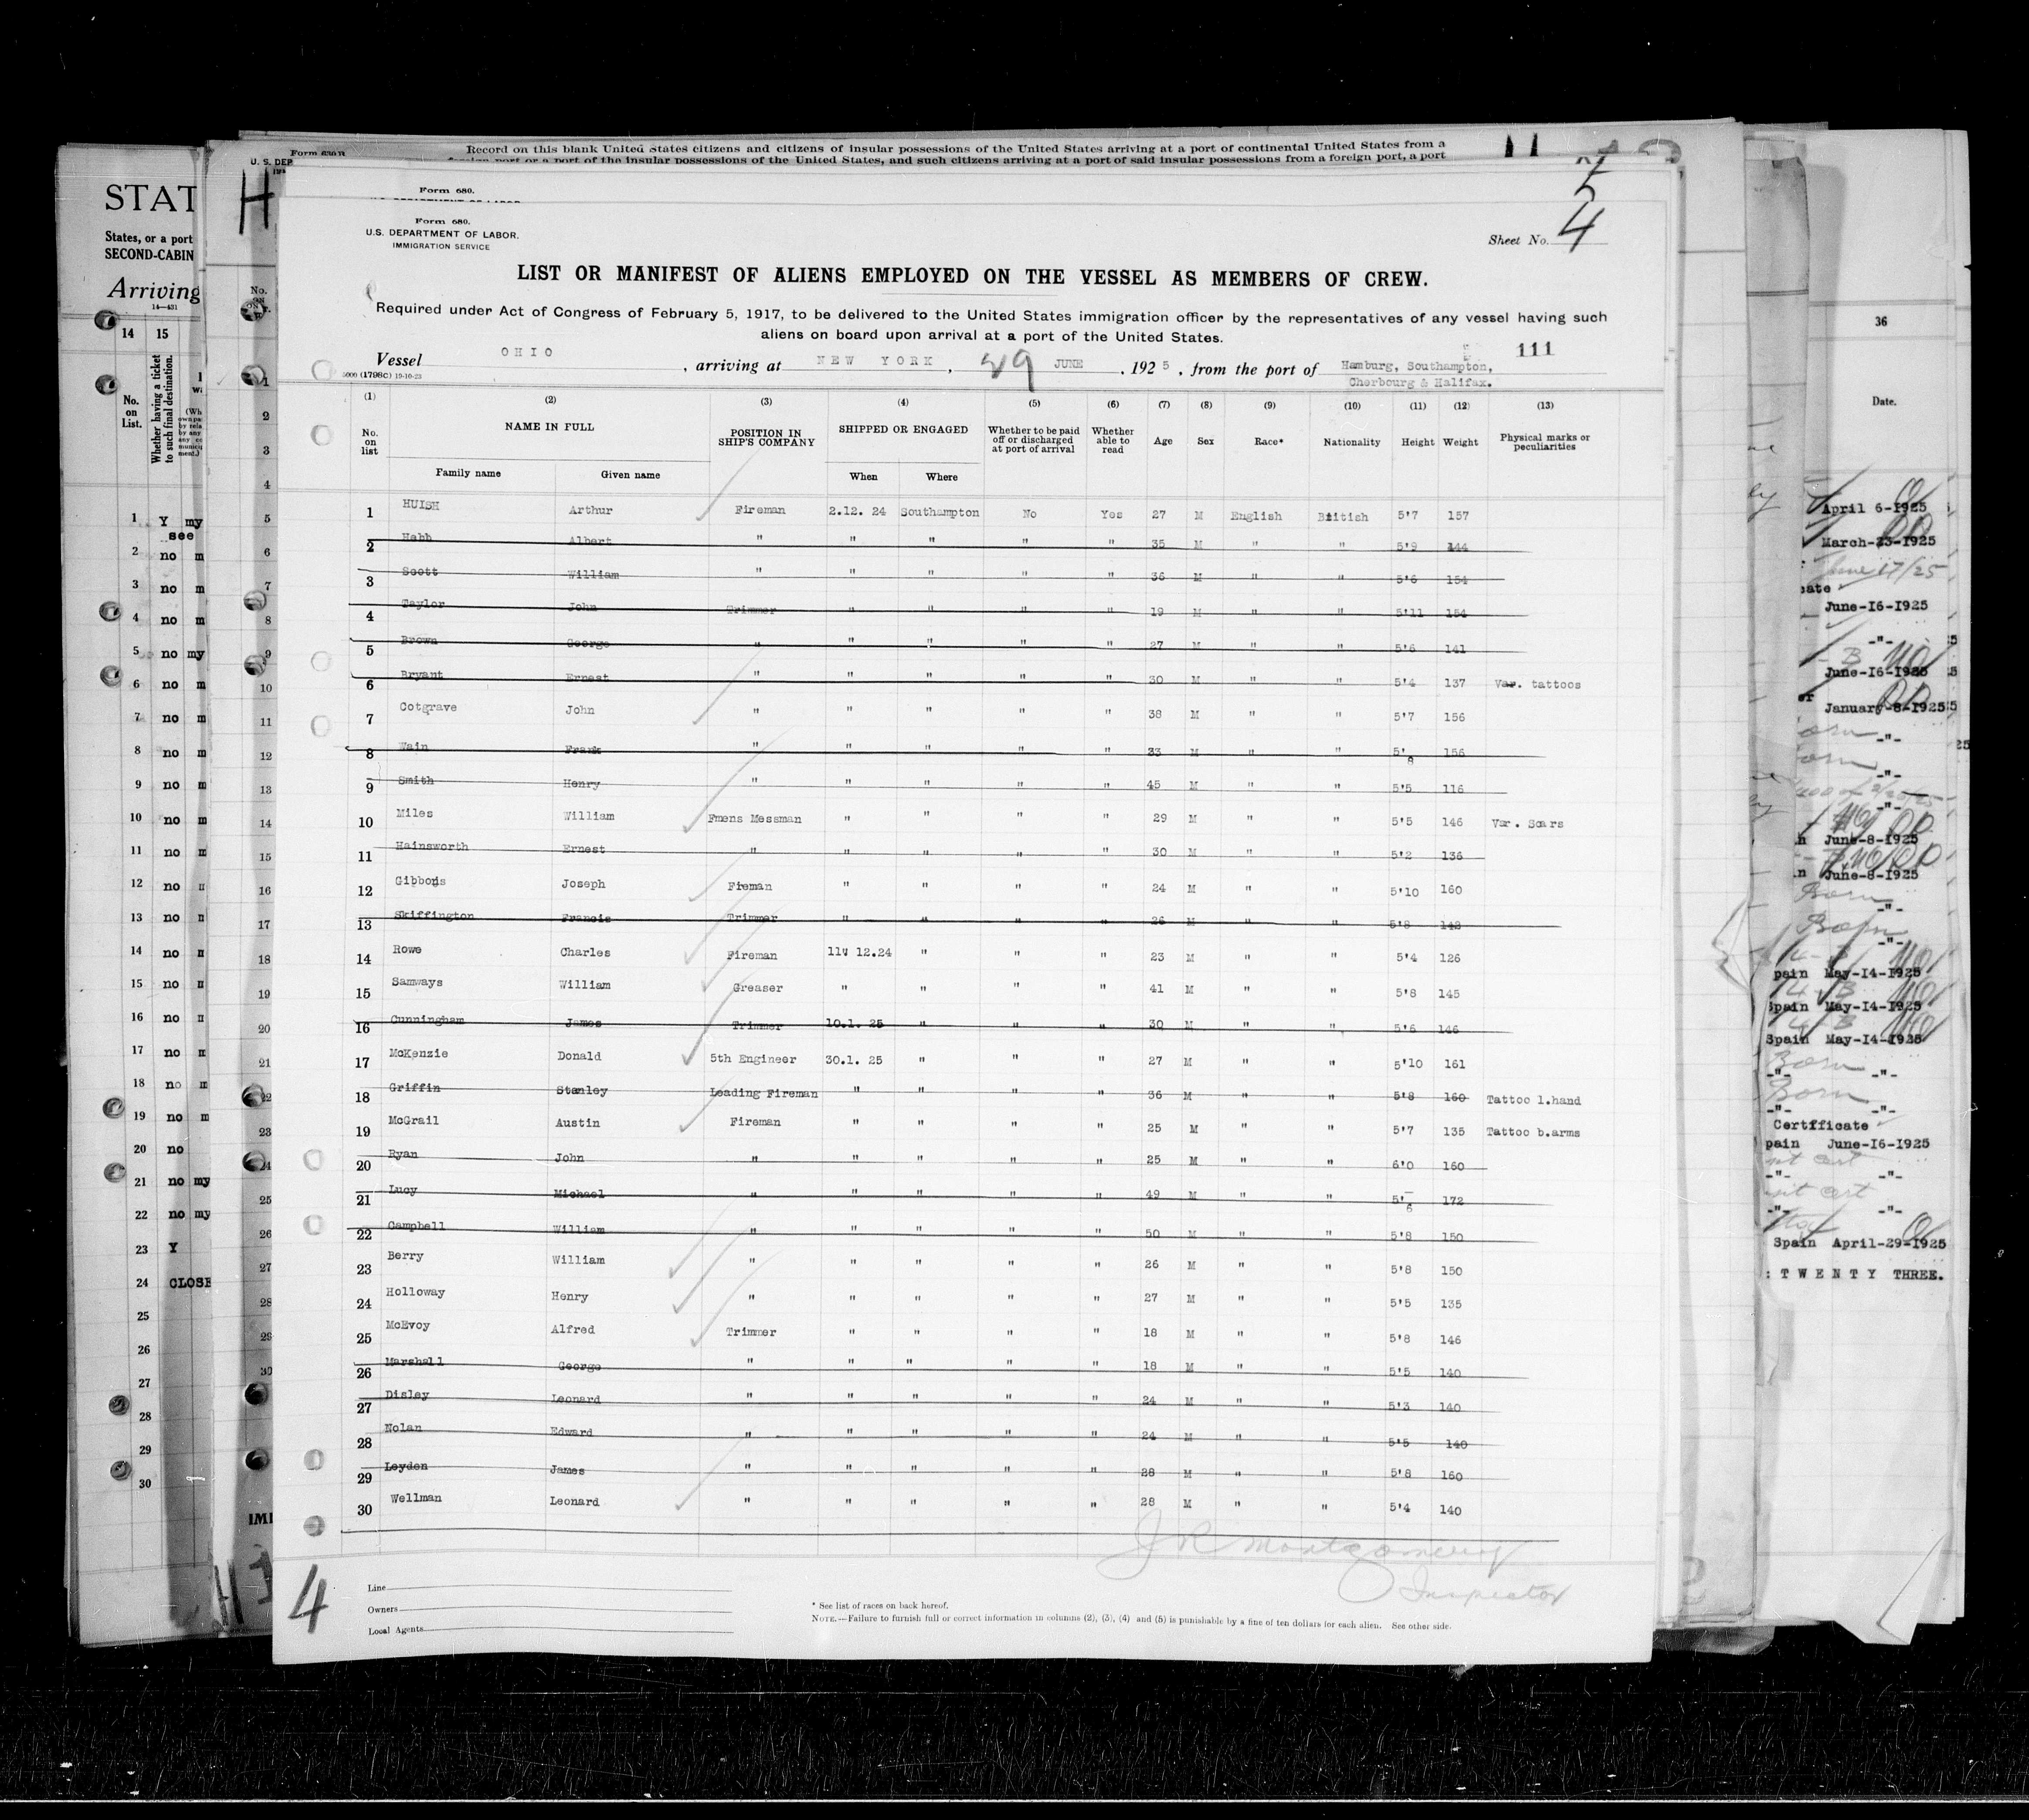 Record on this blank United States citizens and citizens of insular possessions of the United States arriving at a port of continental United States from a
foreign port or a port of the insular possessions of the United States, and such citizens arriving at a port of said insular possessions from a foreign port, a port
Form 630 B
U. S. DEP
STAT
States, or a port
SECOND-CABIN
Arriving
14—431
14 15
No. on List.
Whether having a ticket to such final destination.
1 Y my
see
2 no m
3 no m
4 no m
5 no my
6 no m
7 no m
8 no m
9 no m
10 no m
11 no m
12 no
13 no
14 no
15 no
16 no
17 no
18 no m
19 no m
20 no
21 no my
22 no my
23 Y
24 CLOSE
25
26
27
28
29
30
H
Form 680.
5
Form 680.
U.S. DEPARTMENT OF LABOR.
IMMIGRATION SERVICE
Sheet No. 4
LIST OR MANIFEST OF ALIENS EMPLOYED ON THE VESSEL AS MEMBERS OF CREW.
Required under Act of Congress of February 5, 1917, to be delivered to the United States immigration officer by the representatives of any vessel having such
aliens on board upon arrival at a port of the United States.
111
Vessel OHIO, arriving at NEW YORK, 29 JUNE, 1925, from the port of Hamburg, Southampton,
Cherbourg & Halifax.
5000 (1798C) 19-10-23
(1) (2) (3) (4) (5) (6) (7) (8) (9) (10) (11) (12) (13)
No. on list NAME IN FULL POSITION IN SHIP'S COMPANY SHIPPED OR ENGAGED Whether to be paid off or discharged at port of arrival Whether able to read Age Sex Race* Nationality Height Weight Physical marks or peculiarities
Family name Given name When Where
1 HUISH Arthur Fireman 2.12. 24 Southampton No Yes 27 M English British 5'7 157
2 Habb Albert " " " " " 35 M " " 5'9 144
3 Scott William " " " " " 36 M " " 5'6 154
4 Taylor John Trimmer " " " " 19 M " " 5'11 154
5 Brown George " " " " " 27 M " " 5'6 141
6 Bryant Ernest " " " " " 30 M " " 5'4 137 Var. tattoos
7 Cotgrave John " " " " " 38 M " " 5'7 156
8 Wain Frank " " " " " 33 M " " 5'8 156
9 Smith Henry " " " " " 45 M " " 5'5 116
10 Miles William Fmens Messman " " " " 29 M " " 5'5 146 Var. Scars
11 Hainsworth Ernest " " " " " 30 M " " 5'2 136
12 Gibbons Joseph Fieman " " " " 24 M " " 5'10 160
13 Skiffington Francis Trimmer " " " " 26 M " " 5'8 142
14 Rowe Charles Fireman 11 12.24 " " " 23 M " " 5'4 126
15 Samways William Greaser " " " " 41 M " " 5'8 145
16 Cunningham James Trimmer 10.1. 25 " " " 30 M " " 5'6 146
17 McKenzie Donald 5th Engineer 30.1. 25 " " " 27 M " " 5'10 161
18 Griffin Stanley Leading Fireman " " " " 36 M " " 5'8 160 Tattoo l.hand
19 McGrail Austin Fireman " " " " 25 M " " 5'7 135 Tattoo b.arms
20 Ryan John " " " " " 25 M " " 6'0 160
21 Lucy Michael " " " " " 49 M " " 5'6 172
22 Campbell William " " " " " 50 M " " 5'8 150
23 Berry William " " " " " 26 M " " 5'8 150
24 Holloway Henry " " " " " 27 M " " 5'5 135
25 McEvoy Alfred Trimmer " " " " 18 M " " 5'8 146
26 Marshall George " " " " " 18 M " " 5'5 140
27 Disley Leonard " " " " " 24 M " " 5'3 140
28 Nolan Edward " " " " " 24 M " " 5'5 140
29 Leyden James " " " " " 28 M " " 5'8 160
30 Wellman Leonard " " " " " 28 M " " 5'4 140
J R Montgomery
Inspector
4
Line
Owners
Local Agents
* See list of races on back hereof.
NOTE.—Failure to furnish full or correct information in columns (2), (3), (4) and (5) is punishable by a fine of ten dollars for each alien. See other side.
36
Date.
April 6-1925
March-23-1925
June 17/25
June-16-1925
-"-
June-16-1925
January-8-1925
-"-
-"-
-"-
June-8-1925
June-8-1925
Born
-"-
Born
-"-
pain May-14-1925
Spain May-14-1925
Spain May-14-1925
Born
-"- -"-
Born
-"- -"-
Certificate
pain June-16-1925
-"- -"-
-"- -"-
Spain April-29-1925
: TWENTY THREE.